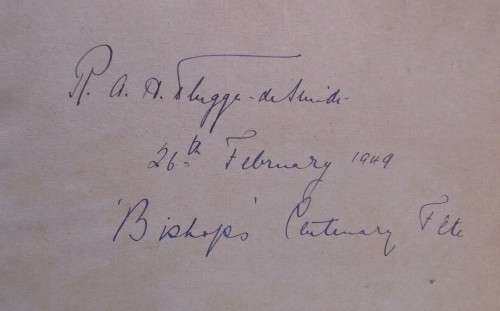 R. A. D. Flugge-de Smidt
26th February 1949
'Bishops' Centenary Fete